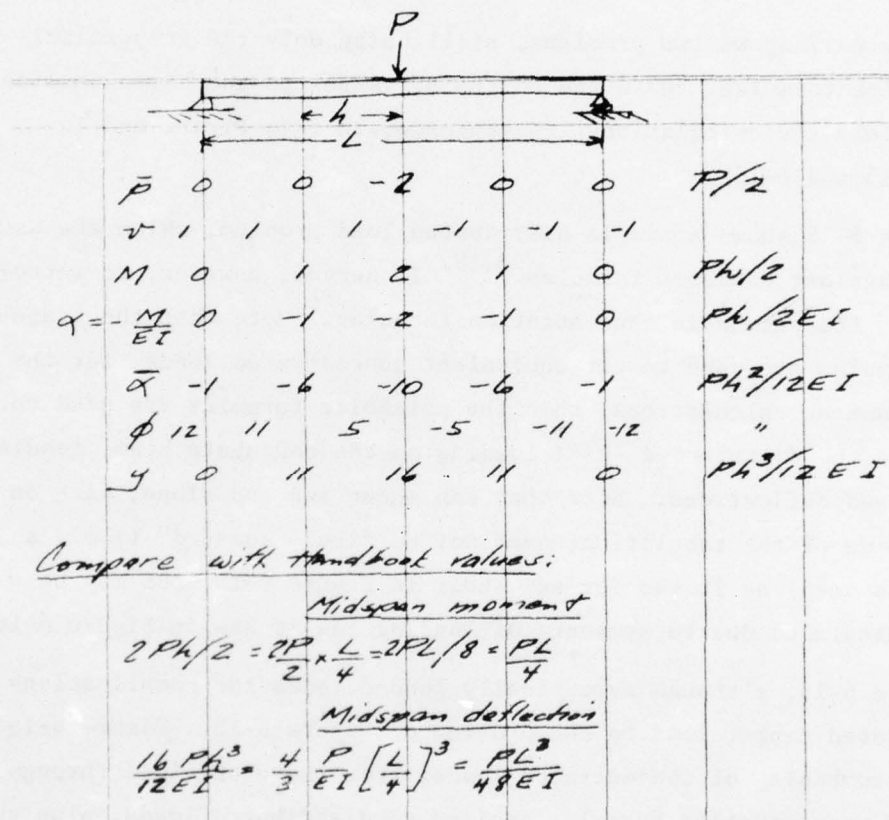 P
h
L
p̄ 0 0 -2 0 0 P/2
v 1 1 -1 -1 -1
M 0 1 2 1 0 Ph/2
α = M/EI 0 1 2 1 0 Ph/2EI
ᾱ -1 -6 -10 -6 -1 Ph²/12EI
φ 12 11 5 -5 -11 -12 "
y 0 11 16 11 0 Ph³/12EI
Compare with Handbook values:
Midspan moment
2Ph/2 = 2P/2 × L/4 = 2PL/8 = PL/4
Midspan deflection
16/12 Ph³/EI = 4/3 P/EI [L/4]³ = PL³/48EI